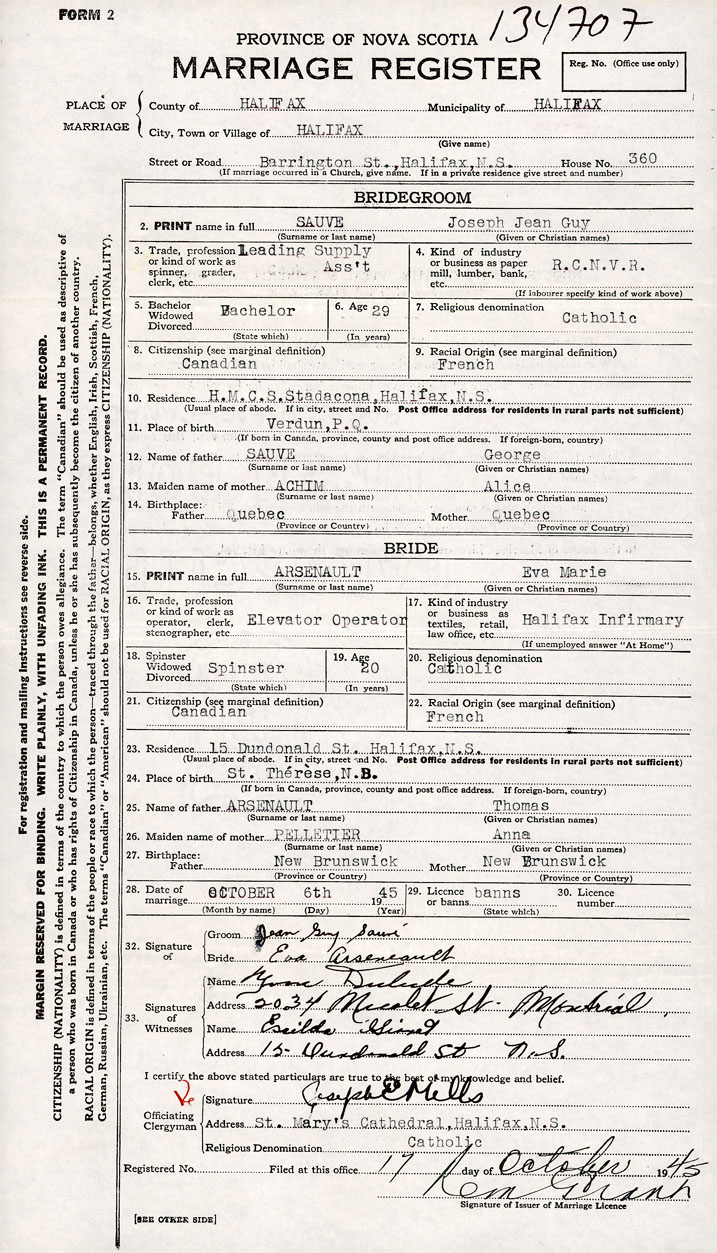 FORM 2
134707
PROVINCE OF NOVA SCOTIA
MARRIAGE REGISTER
Reg. No. (Office use only)
PLACE OF MARRIAGE
County of HALIFAX Municipality of HALIFAX
City, Town or Village of HALIFAX
(Give name)
Street or Road Barrington St.,Halifax,N.S. House No. 360
(If marriage occurred in a Church, give name. If in a private residence give street and number)
BRIDEGROOM
2. PRINT name in full SAUVE Joseph Jean Guy
(Surname or last name) (Given or Christian names)
3. Trade, profession or kind of work as spinner, grader, clerk, etc. Leading Supply Ass't
4. Kind of industry or business as paper mill, lumber, bank, etc. R.C.N.V.R.
(If labourer specify kind of work above)
5. Bachelor Widowed Divorced Bachelor
(State which)
6. Age 29
(In years)
7. Religious denomination Catholic
8. Citizenship (see marginal definition) Canadian
9. Racial Origin (see marginal definition) French
10. Residence H.M.C.S.Stadacona,Halifax,N.S.
(Usual place of abode. If in city, street and No. Post Office address for residents in rural parts not sufficient)
11. Place of birth Verdun,P.Q.
(If born in Canada, province, county and post office address. If foreign-born, country)
12. Name of father SAUVE George
(Surname or last name) (Given or Christian names)
13. Maiden name of mother ACHIM Alice
(Surname or last name) (Given or Christian names)
14. Birthplace:
Father Quebec Mother Quebec
(Province or Country) (Province or Country)
BRIDE
15. PRINT name in full ARSENAULT Eva Marie
(Surname or last name) (Given or Christian names)
16. Trade, profession or kind of work as operator, clerk, stenographer, etc. Elevator Operator
17. Kind of industry or business as textiles, retail, law office, etc. Halifax Infirmary
(If unemployed answer "At Home")
18. Spinster Widowed Divorced Spinster
(State which)
19. Age 20
(In years)
20. Religious denomination Catholic
21. Citizenship (see marginal definition) Canadian
22. Racial Origin (see marginal definition) French
23. Residence 15 Dundonald St. Halifax,N.S.
(Usual place of abode. If in city, street and No. Post Office address for residents in rural parts not sufficient)
24. Place of birth St. Thérèse,N.B.
(If born in Canada, province, county and post office address. If foreign-born, country)
25. Name of father ARSENAULT Thomas
(Surname or last name) (Given or Christian names)
26. Maiden name of mother PELLETIER Anna
(Surname or last name) (Given or Christian names)
27. Birthplace:
Father New Brunswick Mother New Brunswick
(Province or Country) (Province or Country)
28. Date of marriage OCTOBER 6th 1945
(Month by name) (Day) (Year)
29. Licence or banns banns
(State which)
30. Licence number
32. Signature of
Groom Jean Guy Sauvé
Bride Eva Arseneault
33. Signatures of Witnesses
Name Yvon
Address 2034 Nicolet St- Montréal,
Name
Address 15- Dundonald St N.S.
I certify the above stated particulars are true to the best of my knowledge and belief.
Officiating Clergyman
Signature Joseph E Mills
Address St. Mary's Cathedral,Halifax,N.S.
Religious Denomination Catholic
Registered No. Filed at this office 17 day of October 1945
Signature of Issuer of Marriage Licence
[SEE OTHER SIDE]
For registration and mailing instructions see reverse side.
MARGIN RESERVED FOR BINDING. WRITE PLAINLY, WITH UNFADING INK. THIS IS A PERMANENT RECORD.
CITIZENSHIP (NATIONALITY) is defined in terms of the country to which the person owes allegiance. The term "Canadian" should be used as descriptive of
a person who was born in Canada or who has rights of Citizenship in Canada, unless he or she has subsequently become the citizen of another country.
RACIAL ORIGIN is defined in terms of the people or race to which the person—traced through the father—belongs, whether English, Irish, Scottish, French,
German, Russian, Ukrainian, etc. The terms "Canadian" or "American" should not be used for RACIAL ORIGIN, as they express CITIZENSHIP (NATIONALITY).